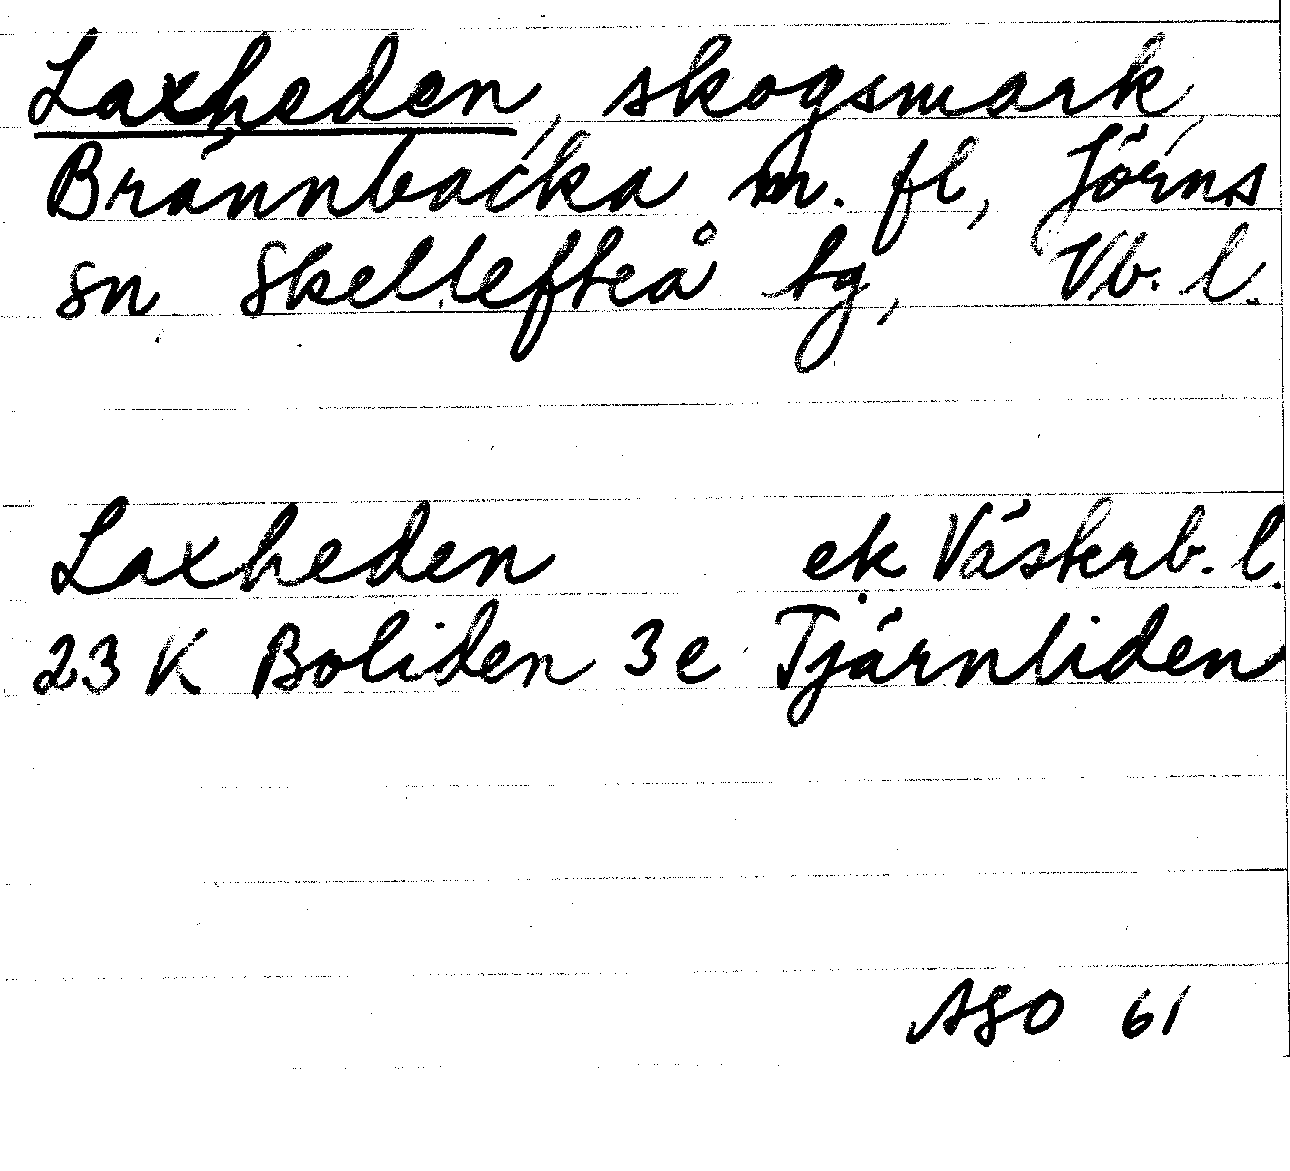 Laxheden, skogsmark,
Brännbacka m. fl, Jörns
sn Skellefteå tg, Vb. l.
Laxheden ek Västerb. l.
23 K Boliden 3 e Tjärnliden
ASO 61